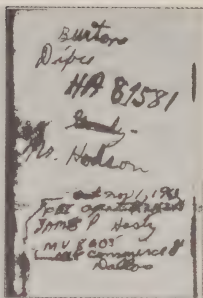 Burton
Dipes
HA 81581
Mr. Hodson
Nov 1, 1963
FBI
James P Hosty
MU 8605
Commerce St
Dallas